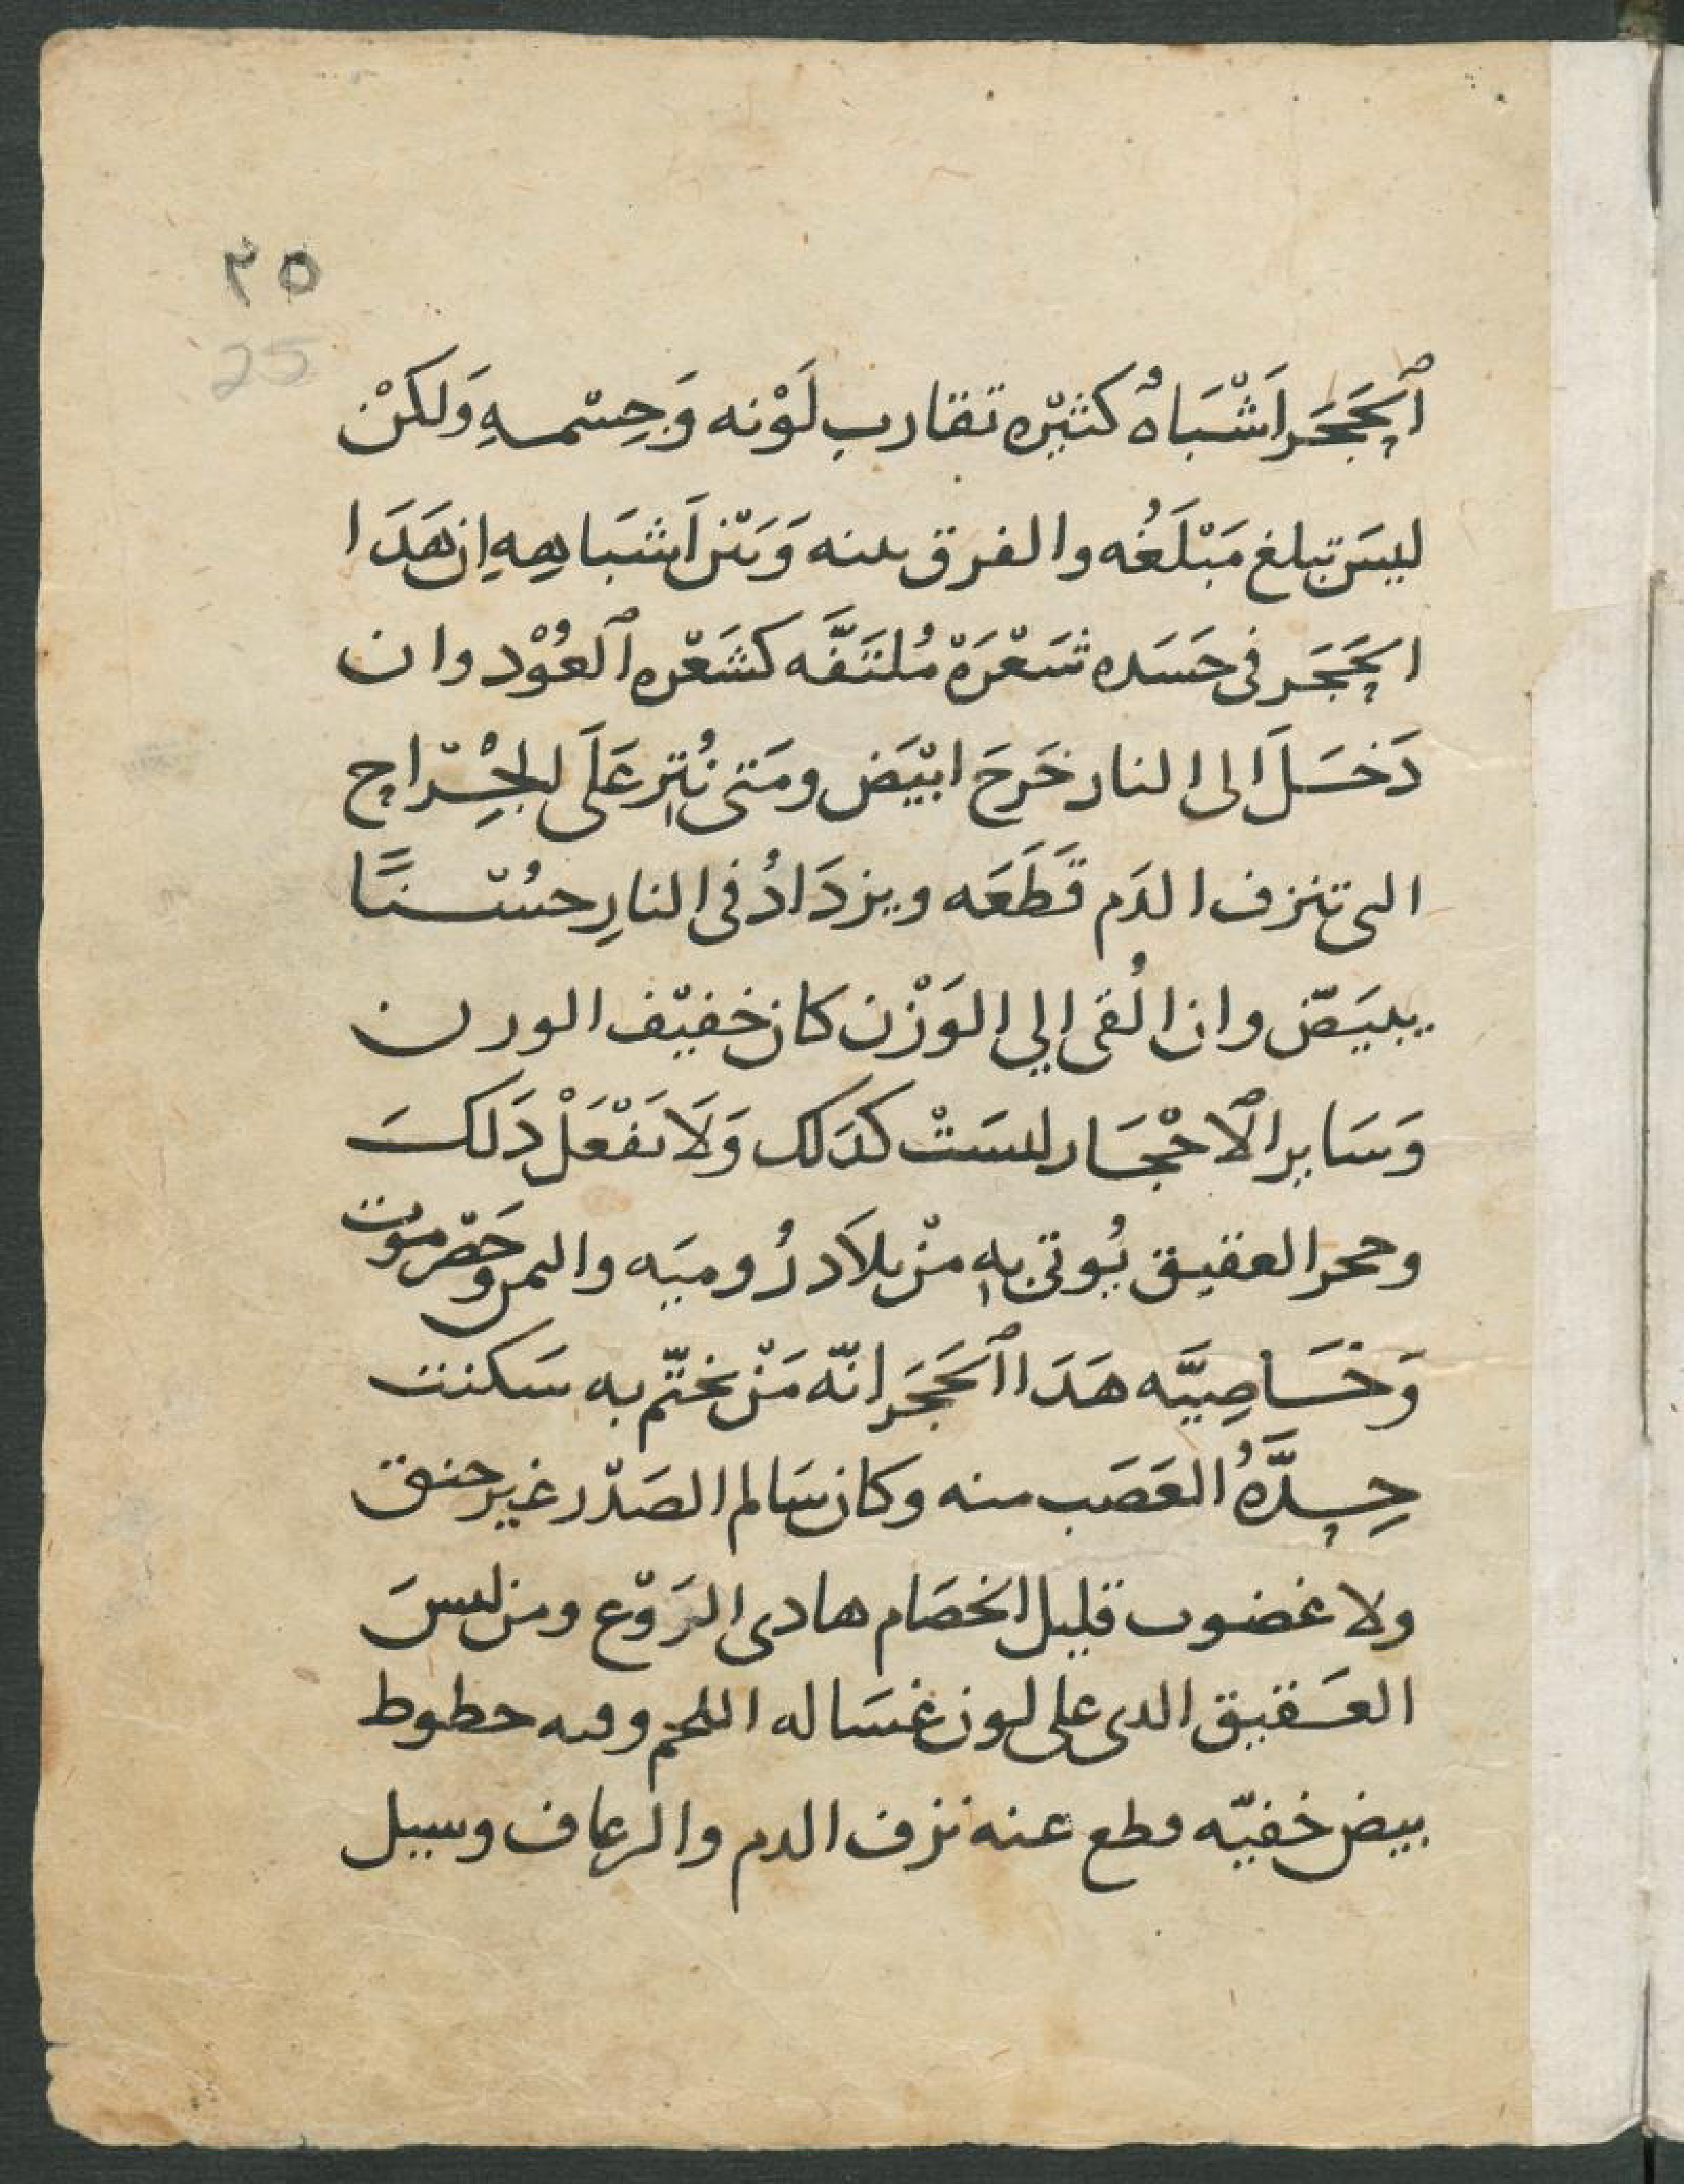 ٢٥
25
ٱلحَجَر اَشْبَاهُ كثيْره تقارب لَوْنه وَجِسْمهِ وَلكنْ
ليسَ تبلغ مَبْلَغُه والفرق بينه وَبَيْن اَشبَاههِ ان هَدَا
الحَجَر فى جَسَده شَعْرَة مُلتَفَّه كشَعْره ٱلعُوْد وان
دَخَلَ الى النار خَرجَ ابْيَض ومَتى نُثِر عَلَى الجِرَاح
التى تنزف الدَم قَطَعَه ويزدَادُ فى النارِ حسُنْـنًا
يبيَضّ وان اُلْقى الي الوَزْن كان خفيْف الوزن
وَسَاير ٱلاحْجَار ليسَتْ كدَلك وَلَا تَفْعَلْ دَلكَ
وحجر العقيق يُوتى بهِ منْ بلاَد رُوميَه واليمن وحَضْرموت
وَخَاصِيَّه هَدَا ٱلحَجَر انّه مَنْ تختّم به سَكنت
حِدَّهُ الغَضَب منه وكان سَالم الصَدْر غير حنق
ولا غضوب قليل الخصَام هادى الرَوْع ومن لبسَ
العَقيق الدى على لون غسَاله اللحم وفيه خطوط
بيض خفيّه قطع عنه نزف الدم والرعاف وسيل